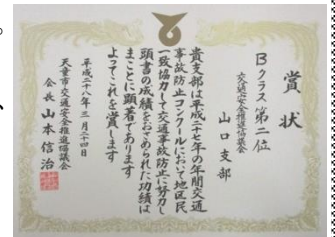 賞状
Bクラス第二位
交通安全推進協議会
山口支部
貴支部は平成二十七年の年間交通
事故防止コンクールにおいて地区民
一致協力して交通事故防止に努力し
頭書の成績をおさめられた功績は
まことに顕著であります
よってこれを賞します
平成二十八年三月二十四日
天童市交通安全推進協議会
会長 山本信治